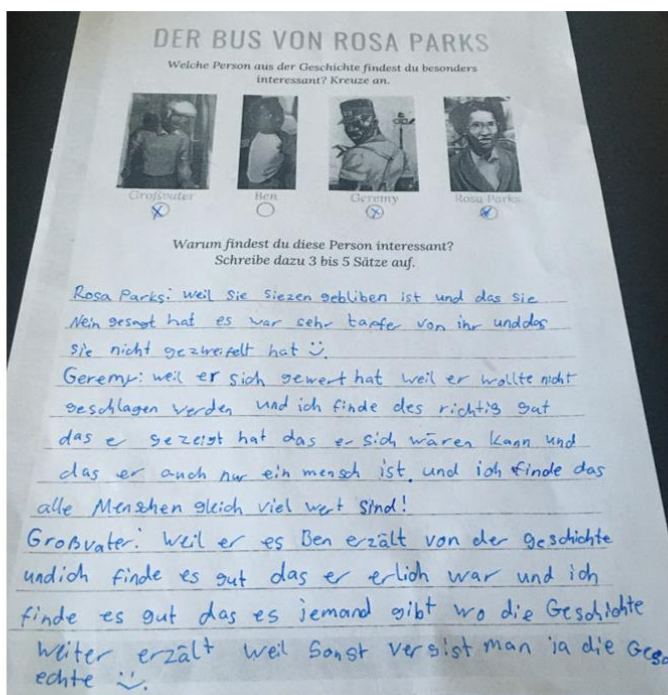 DER BUS VON ROSA PARKS
Welche Person aus der Geschichte findest du besonders
interessant? Kreuze an.
Großvater Ben Geremy Rosa Parks
Warum findest du diese Person interessant?
Schreibe dazu 3 bis 5 Sätze auf.
Rosa Parks: weil sie siezen gebliben ist und das sie
Nein gesagt hat es war sehr tapfer von ihr unddas
sie nicht gezweifelt hat :).
Geremy: weil er sich gewert hat weil er wollte nicht
geschlagen werden und ich finde des richtig gut
das e gezeigt hat das er sich wären kann und
das er auch nur ein mensch ist. und ich finde das
alle Menschen gleich viel wert sind!
Großvater: Weil er es Ben erzält von der geschichte
undich finde es gut das er erlich war und ich
finde es gut das es jemand gibt wo die Geschichte
weiter erzält weil sonst vergist man ja die Gesc
echte :).